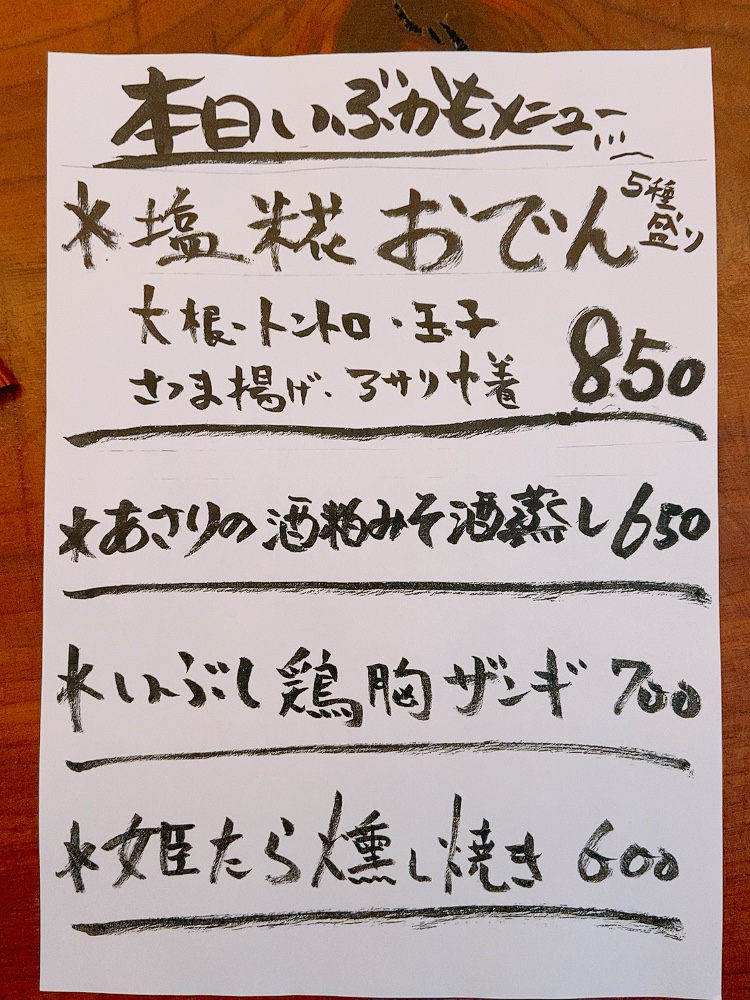 本日いぶかもメニュー
*塩糀おでん 5種盛り
大根・トントロ・玉子
さつま揚げ・アサリ巾着 850
*あさりの酒粕みそ酒蒸し 650
*いぶし鶏胸ザンギ 700
*姫たら燻し焼き 600